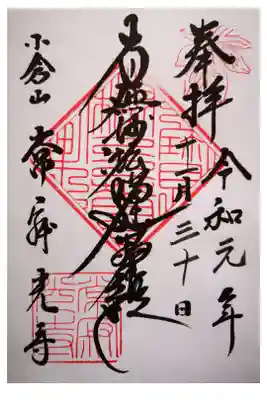 奉拝
令和元年
十一月三十日
南無妙法蓮華経
小倉山
常寂光寺